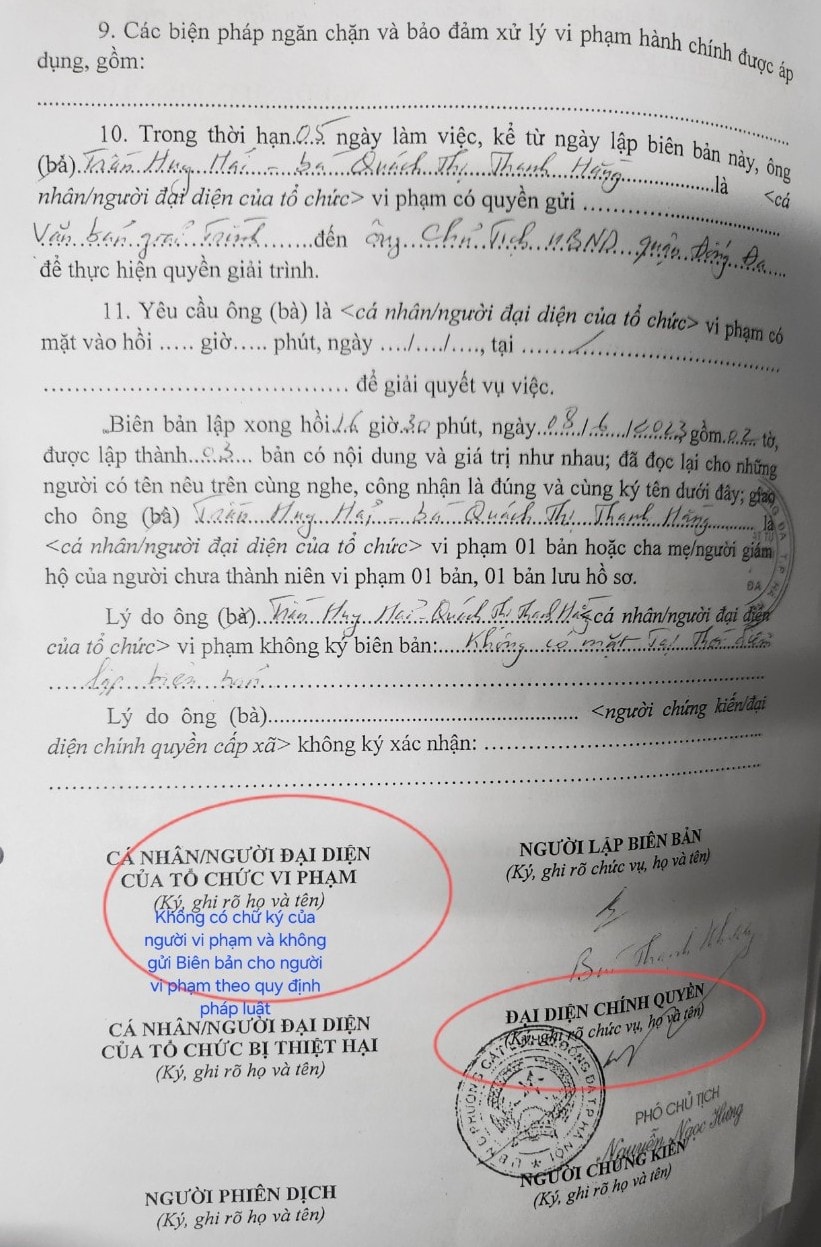 9. Các biện pháp ngăn chặn và bảo đảm xử lý vi phạm hành chính được áp
dụng, gồm:
10. Trong thời hạn 05 ngày làm việc, kể từ ngày lập biên bản này, ông
(bà) Trần Huy Hải - bà Quách Thị Thanh Hằng là <cá
nhân/người đại diện của tổ chức> vi phạm có quyền gửi
Văn bản giải trình đến ông Chủ Tịch UBND quận Đống Đa
để thực hiện quyền giải trình.
11. Yêu cầu ông (bà) là <cá nhân/người đại diện của tổ chức> vi phạm có
mặt vào hồi ..... giờ..... phút, ngày ..../..../...., tại
để giải quyết vụ việc.
Biên bản lập xong hồi 16 giờ 30 phút, ngày 08/6/2023, gồm 02 tờ,
được lập thành 03 bản có nội dung và giá trị như nhau; đã đọc lại cho những
người có tên nêu trên cùng nghe, công nhận là đúng và cùng ký tên dưới đây; giao
cho ông (bà) Trần Huy Hải - bà Quách Thị Thanh Hằng là
<cá nhân/người đại diện của tổ chức> vi phạm 01 bản hoặc cha mẹ/người giám
hộ của người chưa thành niên vi phạm 01 bản, 01 bản lưu hồ sơ.
Lý do ông (bà) Trần Huy Hải - Quách Thị Thanh Hằng <cá nhân/người đại diện
của tổ chức> vi phạm không ký biên bản: Không có mặt Tại Thời điểm
lập biên bản
Lý do ông (bà) <người chứng kiến/đại
diện chính quyền cấp xã> không ký xác nhận:
CÁ NHÂN/NGƯỜI ĐẠI DIỆN
CỦA TỔ CHỨC VI PHẠM
(Ký, ghi rõ họ và tên)
Không có chữ ký của
người vi phạm và không
gửi Biên bản cho người
vi phạm theo quy định
pháp luật
NGƯỜI LẬP BIÊN BẢN
(Ký, ghi rõ chức vụ, họ và tên)
CÁ NHÂN/NGƯỜI ĐẠI DIỆN
CỦA TỔ CHỨC BỊ THIỆT HẠI
(Ký, ghi rõ họ và tên)
ĐẠI DIỆN CHÍNH QUYỀN
(Ký, ghi rõ chức vụ, họ và tên)
PHÓ CHỦ TỊCH
Nguyễn Ngọc Hưng
NGƯỜI PHIÊN DỊCH
(Ký, ghi rõ họ và tên)
NGƯỜI CHỨNG KIẾN
(Ký, ghi rõ họ và tên)